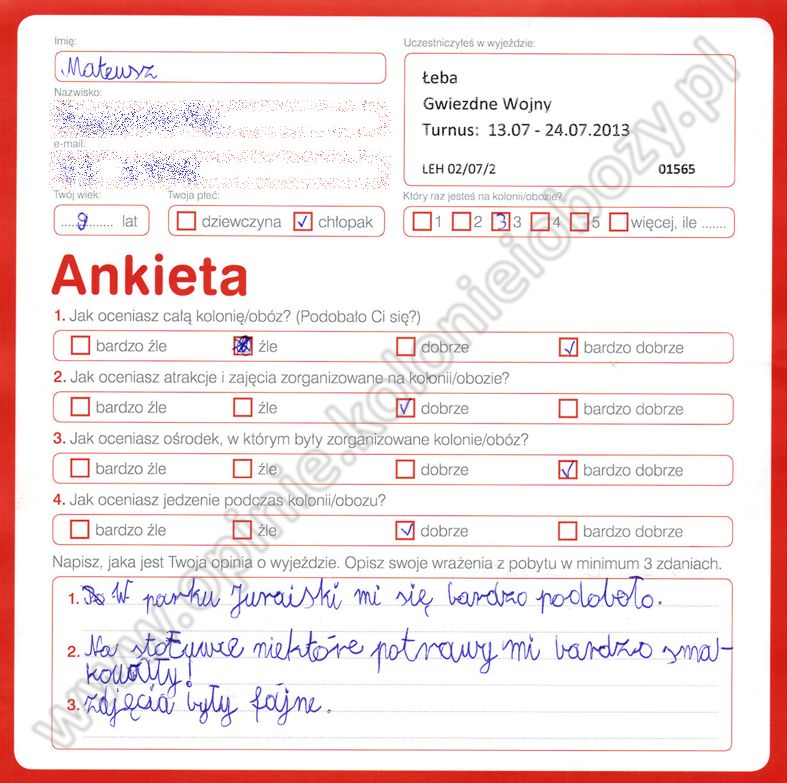 Imię:
Uczestniczyłeś w wyjeździe:
Mateusz
Łeba
Gwiezdne Wojny
Turnus: 13.07 - 24.07.2013
LEH 02/07/2 01565
Nazwisko:
e-mail:
Twój wiek: Twoja płeć: Który raz jesteś na kolonii/obozie?
9 lat dziewczyna ✓ chłopak 1 2 3 3 4 5 więcej, ile .......
Ankieta
1. Jak oceniasz całą kolonię/obóz? (Podobało Ci się?)
bardzo źle źle dobrze ✓ bardzo dobrze
2. Jak oceniasz atrakcje i zajęcia zorganizowane na kolonii/obozie?
bardzo źle źle ✓ dobrze bardzo dobrze
3. Jak oceniasz ośrodek, w którym były zorganizowane kolonie/obóz?
bardzo źle źle dobrze ✓ bardzo dobrze
4. Jak oceniasz jedzenie podczas kolonii/obozu?
bardzo źle źle ✓ dobrze bardzo dobrze
Napisz, jaka jest Twoja opinia o wyjeździe. Opisz swoje wrażenia z pobytu w minimum 3 zdaniach.
1. W parku Juraiski mi się bardzo podoboło.
2. Na stołuwce niektóre potrawy mi bardzo sma-
kowały!
3. zdjęcia były fájne.
www.opinie.kolonieiobozy.pl